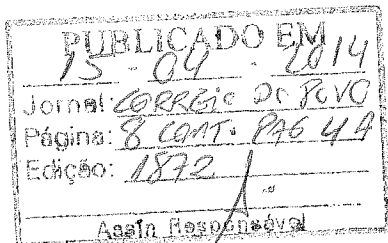 PUBLICADO EM
15 - 04 - 2014
Jornal: CORREIO DO POVO
Página: 8 CONT. PAG 4 A
Edição: 1872
Assin Responsável